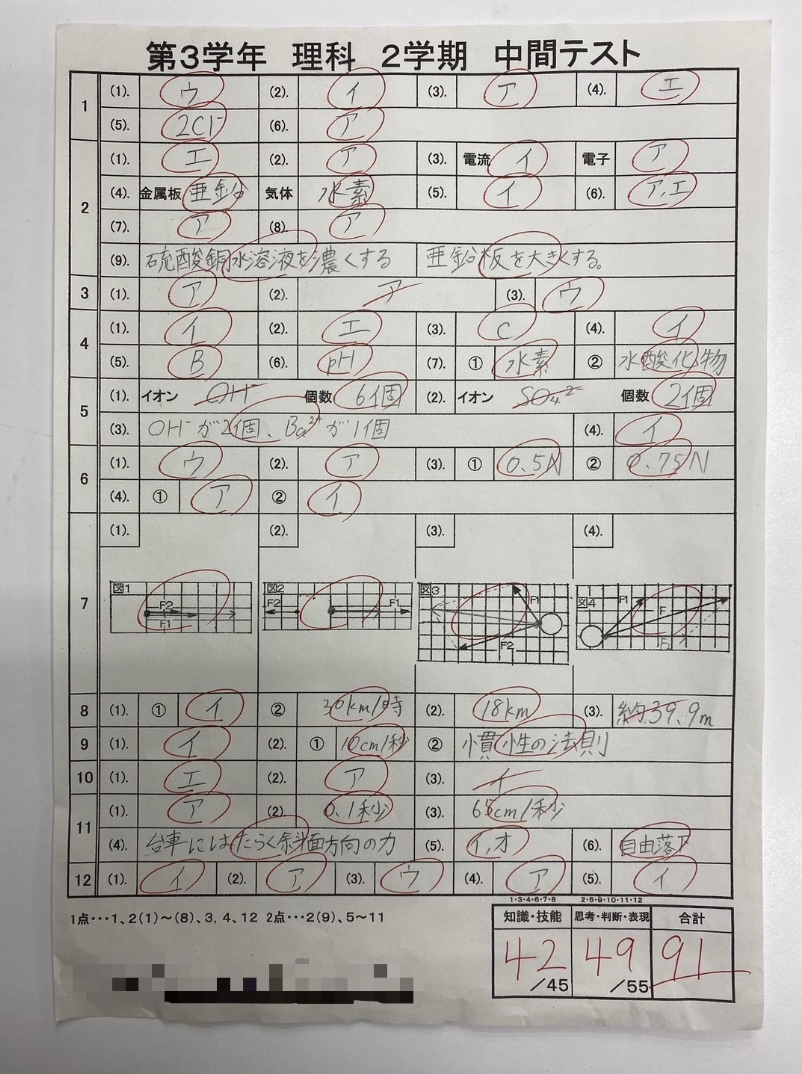 第3学年 理科 2学期 中間テスト
1 (1). ウ (2). イ (3). ア (4). エ
(5). 2Cl⁻ (6). ア
2 (1). エ (2). ア (3). 電流 イ 電子 ア
(4). 金属板 亜鉛 気体 水素 (5). イ (6). ア,エ
(7). ア (8). ア
(9). 硫酸銅水溶液を濃くする 亜鉛板を大きくする。
3 (1). ア (2). ア (3). ウ
4 (1). イ (2). エ (3). C (4). イ
(5). B (6). pH (7). ① 水素 ② 水酸化物
5 (1). イオン OH⁻ 個数 6個 (2). イオン SO₄²⁻ 個数 2個
(3). OH⁻が2個、Ba²⁺が1個 (4). イ
6 (1). ウ (2). ア (3). ① 0.5N ② 0.75N
(4). ① ア ② イ
7 (1). (2). (3). (4).
図1 F2 F1 図2 F2 F1 図3 F1 F2 図4 F1 F F2
8 (1). ① イ ② 30km/時 (2). 18km (3). 約39.9m
9 (1). イ (2). ① 10cm/秒 ② 慣性の法則
10 (1). エ (2). ア (3). イ
11 (1). ア (2). 0.1秒 (3). 65cm/秒
(4). 台車にはたらく斜面方向の力 (5). イ,オ (6). 自由落下
12 (1). イ (2). ア (3). ウ (4). ア (5). イ
1・3・4・6・7・8 2・5・9・10・11・12
1点・・・1、2(1)~(8)、3、4、12 2点・・・2(9)、5~11
知識・技能 思考・判断・表現 合計
42/45 49/55 91